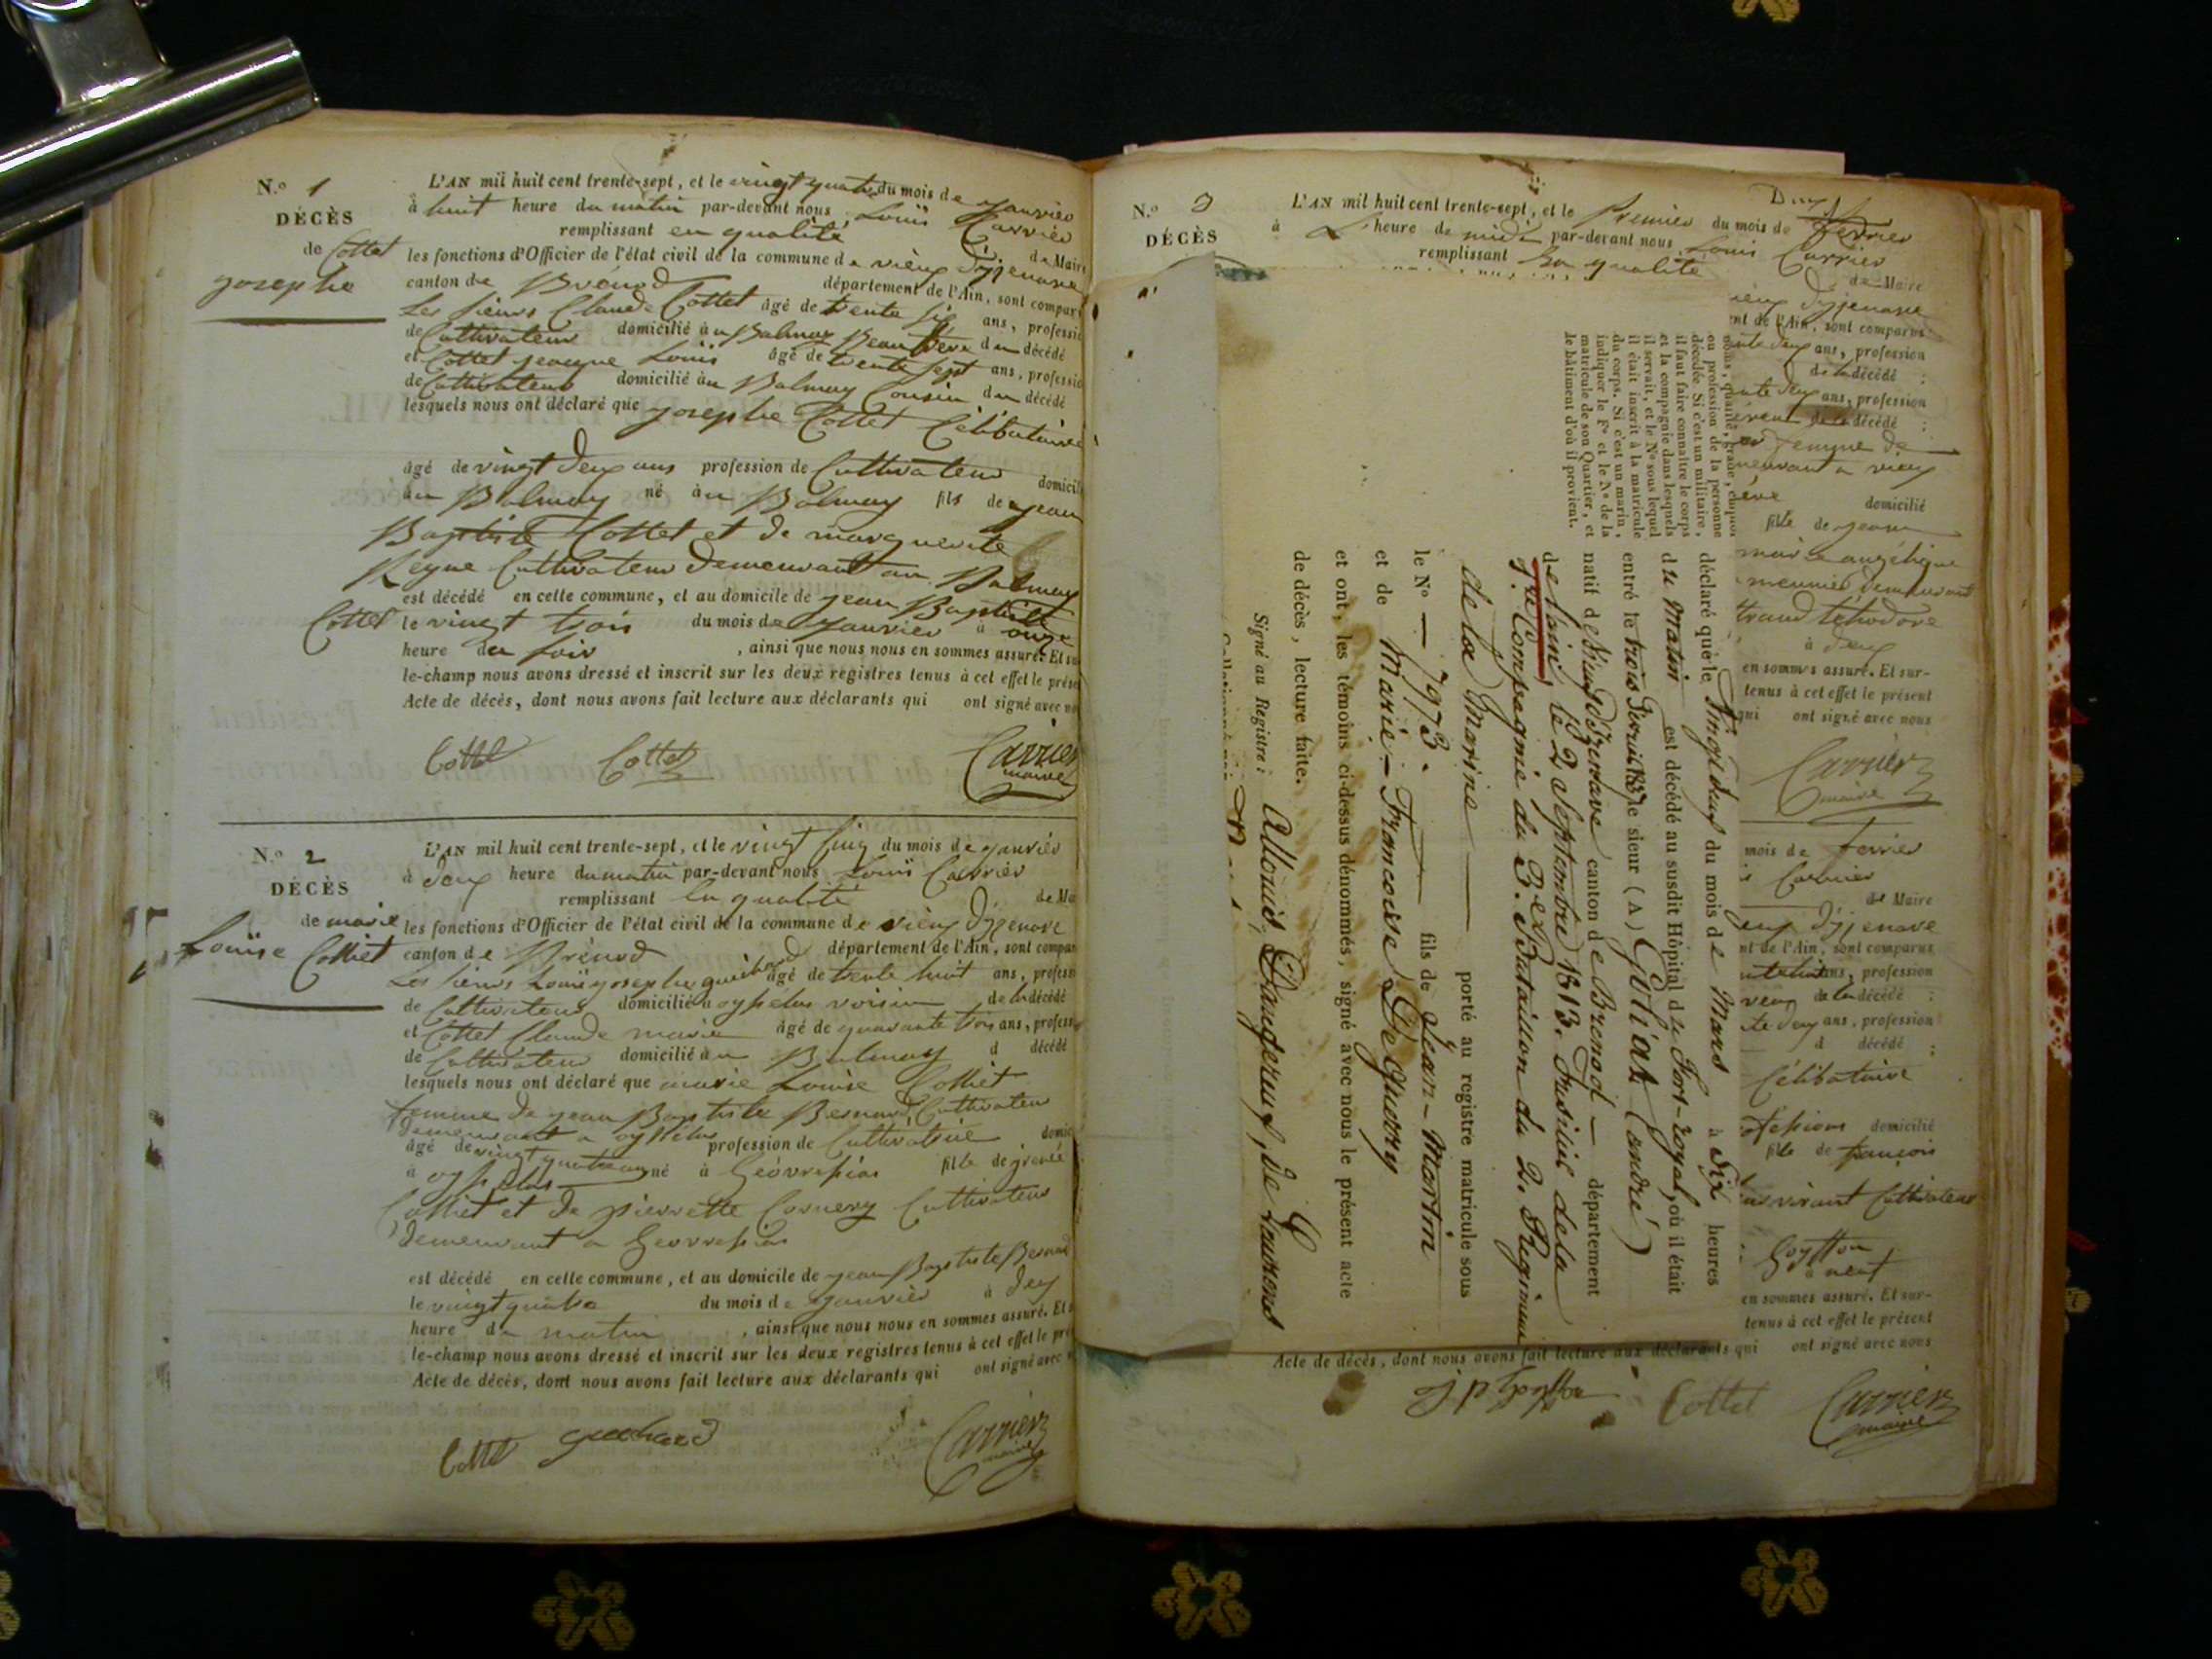 N.o 1
DÉCÈS
de Cottet
josephe
L'AN mil huit cent trente-sept, et le vingt quatre du mois de janvier
à huit heure du matin par-devant nous Louis Carrier
remplissant en qualité de Maire
les fonctions d'Officier de l'état civil de la commune de vieux Dizenave
canton de Brénod département de l'Ain, sont compar
Les sieurs Claude Cottet âgé de trente six ans, professio
de Cultivateur domicilié au Balmay Beau frère du décédé
et Cottet jacque Louis âgé de trente sept ans, professio
de Cultivateur domicilié au Balmay Cousin du décédé
lesquels nous ont déclaré que josephe Cottet Célibataire
âgé de vingt deux ans profession de Cultivateur domicil
au Balmay né au Balmay fils de jean
Baptiste Cottet et de marguerite
Reyne Cultivateur demeurant au Balmay
est décédé en cette commune, et au domicile de jean Baptiste
Cottet le vingt trois du mois de janvier à onze
heure du soir , ainsi que nous nous en sommes assuré. Et su
le-champ nous avons dressé et inscrit sur les deux registres tenus à cet effet le prése
Acte de décès, dont nous avons fait lecture aux déclarants qui ont signé avec no
Cottet Cottet Carrier
maire
N.o 2
DÉCÈS
de marie
Louise Colliet
L'AN mil huit cent trente-sept, et le vingt cinq du mois de janvier
à deux heure du matin par-devant nous Louis Carrier
remplissant en qualité de Ma
les fonctions d'Officier de l'état civil de la commune de vieux Dizenave
canton de Brénod département de l'Ain, sont compar
Les sieurs Louis josephe guichard âgé de trente huit ans, profess
de Cultivateur domicilié a voisin de la décédé
et Cottet Claude marie âgé de quarante trois ans, profess
de Cultivateur domicilié au Balmay d décédé
lesquels nous ont déclaré que marie Louise Colliet
femme de jean Baptiste Bernard Cultivateur
demeurant a
âgé de vingt quatre ans profession de Cultivatrice domic
à né à Géovressiat fille de
Colliet et de pierrette Cultivateur
demeurant a Geovressiat
est décédé en cette commune, et au domicile de jean Baptiste Bernard
le vingt quatre du mois de janvier à deux
heure du matin , ainsi que nous nous en sommes assuré. Et s
le-champ nous avons dressé et inscrit sur les deux registres tenus à cet effet le pré
Acte de décès, dont nous avons fait lecture aux déclarants qui ont signé avec n
Cottet guichard Carrier
maire
N.o 3
DÉCÈS
L'AN mil huit cent trente-sept, et le Premier du mois de fevrier
à heure de midi par-devant nous Louis Carrier
remplissant en qualité de Maire
ieux Dizenave
nt de l'Ain, sont comparus
nte deux ans, profession
de la décédé ;
ante deux ans, profession
de la décédé ;
femme de
meurant a vieux
domicilié
fille de jean
marie angélique
meunier demeurant
à deux
en sommes assuré. Et sur-
tenus à cet effet le présent
qui ont signé avec nous
Carrier
maire
mois de fevrier
Carrier
de Maire
eux Dizenave
nt de l'Ain, sont comparus
ans, profession
de la décédé ;
te deux ans, profession
d décédé ;
Célibataire
domicilié
fils de françois
vivant Cultivateur
Goyffon
à neuf
en sommes assuré. Et sur-
tenus à cet effet le présent
Acte de décès, dont nous avons fait lecture aux déclarants qui ont signé avec nous
Cottet Carrier
maire
noms, qualité, grade, emploi
ou profession de la personne
décédée. Si c'est un militaire,
il faut faire connaître le corps
et la compagnie dans lesquels
il servait, et le N° sous lequel
il était inscrit à la matricule
du corps. Si c'est un marin,
indiquer le F° et le N° de la
matricule de son Quartier, et
le bâtiment d'où il provient.
déclaré que le Vingt deux du mois de Mars à Six heures
du Matin est décédé au susdit Hôpital de Fort-royal, où il était
entré le trois Février 1837 le sieur (A) Goliat (andré)
natif de Vieux d'Izenave canton de Brenod — département
de l'ain, le 2 Septembre 1813. Fusilier de la
Compagnie du 3. Bataillon du 2. Régiment
de la Marine — porté au registre matricule sous
le N° — 7973. — fils de Jean-Martin
et de Marie-Francoise Dequory
et ont, les témoins ci-dessus dénommés, signé avec nous le présent acte
de décès, lecture faite.
Signé au Registre: Allouis, Daugereux, De